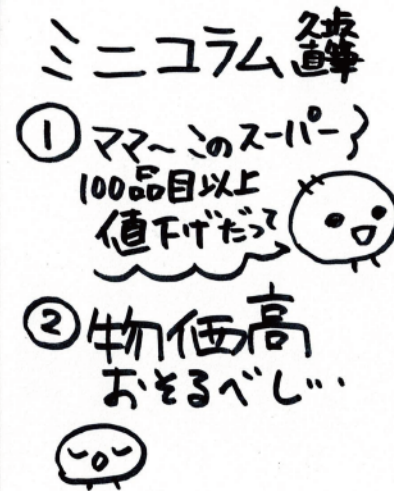 ミニコラム 久坂直筆
① ママ〜このスーパー
100品目以上
値下げだって
② 物価高
おそるべし…